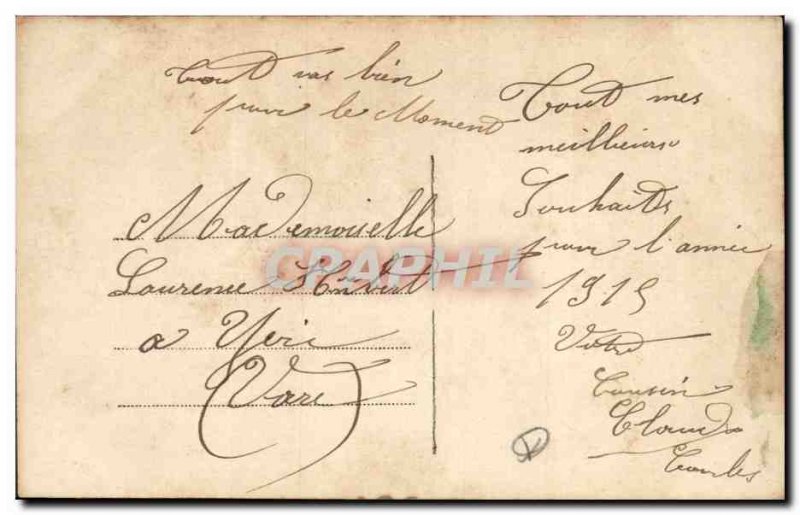 Tout vas bien
pour le Moment
Mademoiselle
Laurence
a
(Var)
Tout mes
meillieurs
Souhaits
pour l'année
1915
Votre
Cousin
Claude
CPAPHIL